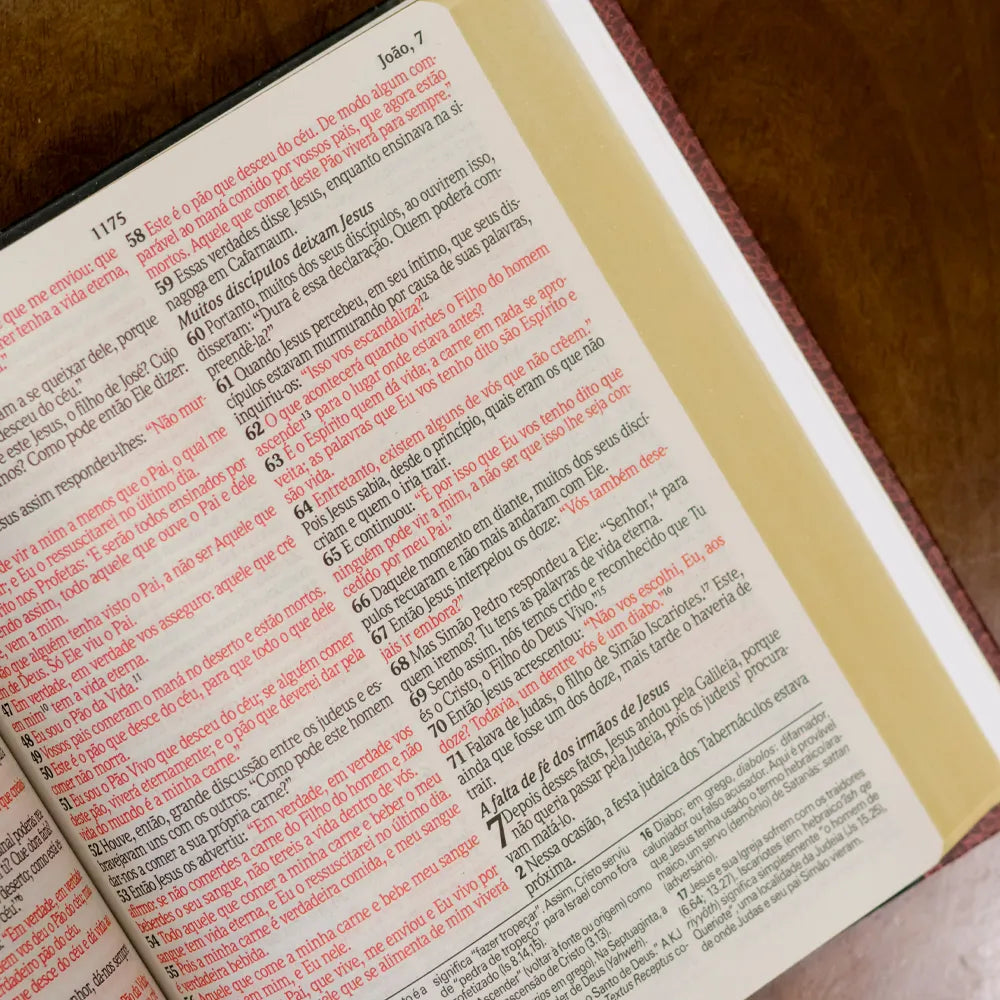 João, 7
1175
que me enviou: que
tenha a vida eterna,
am a se queixar dele, porque
desceu do céu.”
este Jesus, o filho de José? Cujo
mos? Como pode então Ele dizer:
sus assim respondeu-lhes: “Não mur-
de vir a mim a menos que o Pai, o qual me
r; e Eu o ressuscitarei no último dia.
ito nos Profetas: ‘E serão todos ensinados por
endo assim, todo aquele que ouve o Pai e dele
vem a mim.
ão que alguém tenha visto o Pai, a não ser Aquele que
m de Deus. Só Ele viu o Pai.
47 Em verdade, em verdade vos asseguro: aquele que crê
em mim¹⁰ tem a vida eterna.
48 Eu sou o Pão da Vida.¹¹
49 Vossos pais comeram o maná no deserto e estão mortos.
50 Este é o pão que desce do céu, para que todo o que dele
comer não morra.
51 Eu sou o Pão Vivo que desceu do céu; se alguém comer
deste pão, viverá eternamente; e o pão que deverei dar pela
vida do mundo é a minha carne.”
52 Houve, então, grande discussão entre os judeus e es-
bravejavam uns com os outros: “Como pode este homem
dar-nos a comer a sua própria carne?”
53 Então Jesus os advertiu: “Em verdade, em verdade vos
afirmo: se não comerdes a carne do Filho do homem e não
beberdes o seu sangue, não tereis a vida dentro de vós.
54 Todo aquele que comer a minha carne e beber o meu
sangue tem vida eterna, e Eu o ressuscitarei no último dia.
55 Pois a minha carne é verdadeira comida, e o meu sangue
é verdadeira bebida.
Aquele que come a minha carne e bebe meu sangue
em mim, e Eu nele.
Pai, que vive, me enviou e Eu vivo por
le que se alimenta de mim viverá
58 Este é o pão que desceu do céu. De modo algum com-
parável ao maná comido por vossos pais, que agora estão
mortos. Aquele que comer deste Pão viverá para sempre.”
59 Essas verdades disse Jesus, enquanto ensinava na si-
nagoga em Cafarnaum.
Muitos discípulos deixam Jesus
60 Portanto, muitos dos seus discípulos, ao ouvirem isso,
disseram: “Dura é essa declaração. Quem poderá com-
preendê-la?”
61 Quando Jesus percebeu, em seu íntimo, que seus dis-
cípulos estavam murmurando por causa de suas palavras,
inquiriu-os: “Isso vos escandaliza?¹²
62 O que acontecerá quando virdes o Filho do homem
ascender¹³ para o lugar onde estava antes?
63 É o Espírito quem dá vida; a carne em nada se apro-
veita; as palavras que Eu vos tenho dito são Espírito e
são vida.
64 Entretanto, existem alguns de vós que não crêem.”
Pois Jesus sabia, desde o princípio, quais eram os que não
criam e quem o iria trair.
65 E continuou: “É por isso que Eu vos tenho dito que
ninguém pode vir a mim, a não ser que isso lhe seja con-
cedido por meu Pai.”
66 Daquele momento em diante, muitos dos seus discí-
pulos recuaram e não mais andaram com Ele.
67 Então Jesus interpelou os doze: “Vós também dese-
jais ir embora?”
68 Mas Simão Pedro respondeu a Ele: “Senhor,¹⁴ para
quem iremos? Tu tens as palavras de vida eterna.
69 Sendo assim, nós temos crido e reconhecido que Tu
és o Cristo, o Filho do Deus Vivo.”¹⁵
70 Então Jesus acrescentou: “Não vos escolhi, Eu, aos
doze? Todavia, um dentre vós é um diabo.”¹⁶
71 Falava de Judas, o filho de Simão Iscariotes,¹⁷ Este,
ainda que fosse um dos doze, mais tarde o haveria de
trair.
A falta de fé dos irmãos de Jesus
7 Depois desses fatos, Jesus andou pela Galileia, porque
não queria passar pela Judeia, pois os judeus procura-
vam matá-lo.
2 Nessa ocasião, a festa judaica dos Tabernáculos estava
próxima.
significa “fazer tropeçar”. Assim, Cristo serviu
de “pedra de tropeço” para Israel como fora
profetizado (Is 8.14,15).
“Ascender” (voltar à fonte ou origem) como
ascensão de Cristo (3.13).
de Deus (Yahweh).
Textus Receptus
16 Diabo, em grego, diabolos: difamador,
caluniador ou falso acusador. Aqui é provável
que Jesus tenha usado o termo hebraico/ara-
maico, um servo (demônio) de Satanás: satan
(adversário).
17 Jesus e sua Igreja sofrem com os traidores
(6.64; 13.27). Iscariotes (em hebraico/ish qe
riyyôth) significa simplesmente “o homem de
Queriote”, uma localidade da Judeia (Js 15.25),
de onde Judas e seu pai Simão vieram.